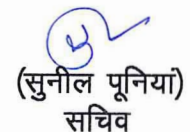 (सुनील पूनिया)
सचिव